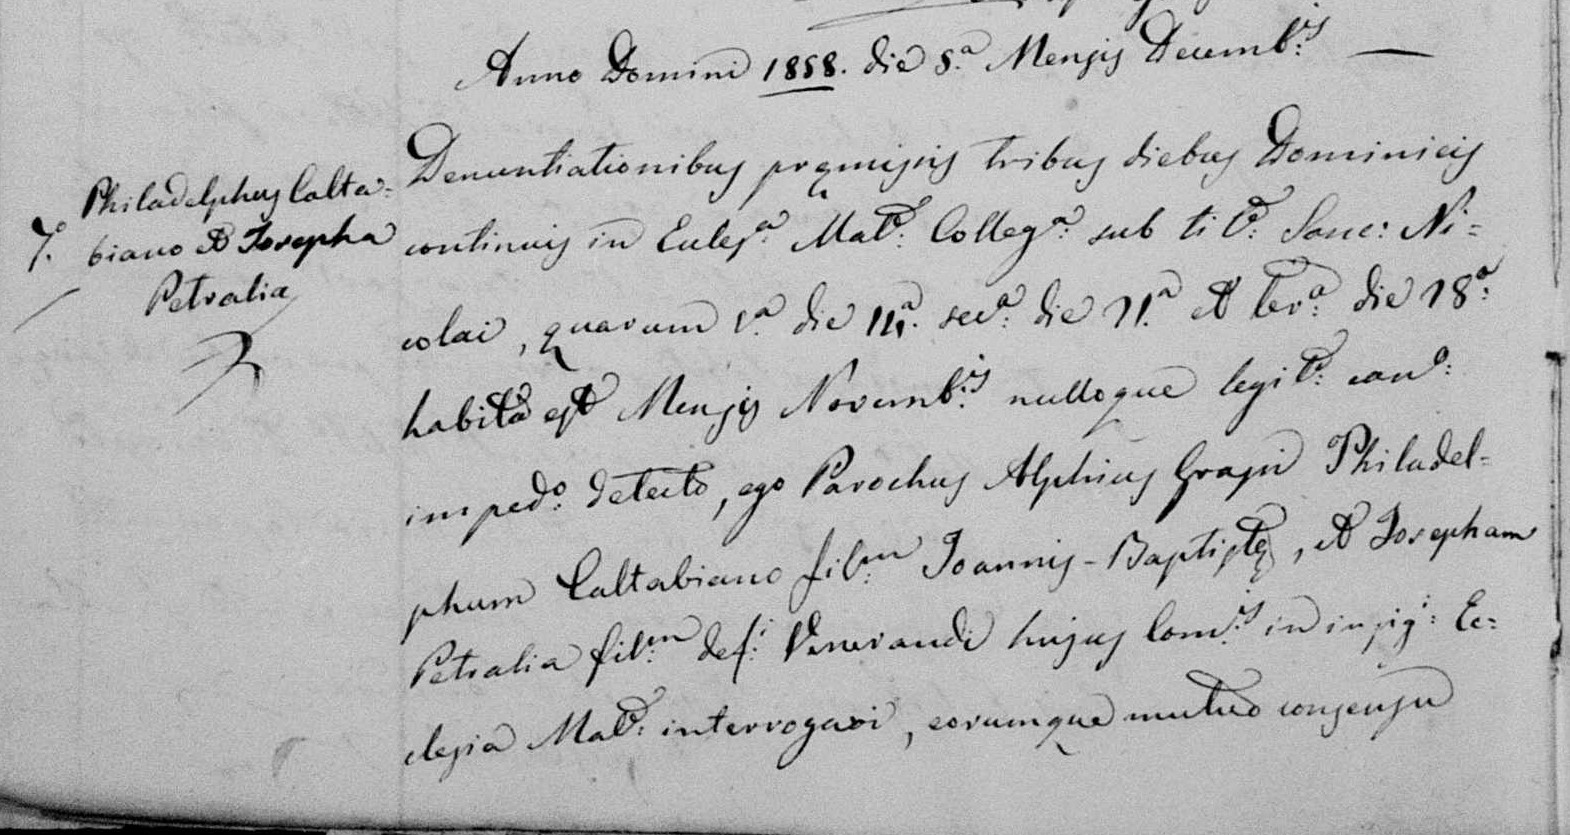 Anno Domini 1858. die 5.ª Mensis Decemb:is —
7. Philadelphus Calta=
biano et Josepha
Petralia
Denuntiationibus pręmissis tribus diebus Dominicis
continuis in Eccles:ª Mat:e Colleg:ª sub tit:o Sanc: Ni=
colai, quarum 1.ª die 14.ª sec:ª die 21.ª et ter:ª die 28:ª
habita est Mensis Novemb:is nulloque legit:o can:o
imped:o detecto, ego Parochus Alphius Grassi Philadel=
phum Caltabiano fil:m Joannis-Baptistę, et Josepham
Petralia fil:m def:i Venerandi hujus Com:is in insig:i Ec=
clesia Mat:e interrogavi, eorumque mutuo consensu